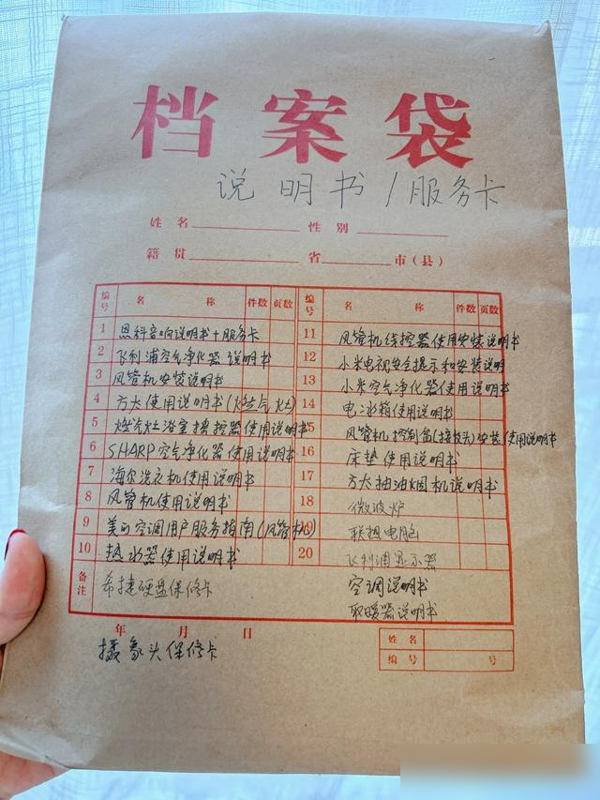 档案袋
说明书/服务卡
姓名 性别
籍贯 省 市(县)
编号 名称 件数 页数 编号 名称 件数 页数
1 恩科音响说明书+服务卡
2 飞利浦空气净化器说明书
3 风管机安装说明书
4 方太使用说明书(燃气灶)
5 燃气灶浴室接控器使用说明书
6 SHARP空气净化器使用说明书
7 海尔洗衣机使用说明书
8 风管机使用说明书
9 美的空调用户服务指南(风管机)
10 热水器使用说明书
11 风管机线控器使用安装说明书
12 小米电视安全提示和安装说明
13 小米空气净化器使用说明书
14 电冰箱使用说明书
15 风管机控制盒(接收头)安装使用说明书
16 床垫使用说明书
17 方太抽油烟机说明书
18 微波炉
19 联想电脑
20 飞利浦显示器
备注 希捷硬盘保修卡
空调说明书
取暖器说明书
年 月 日
摄象头保修卡
姓名
编号 号